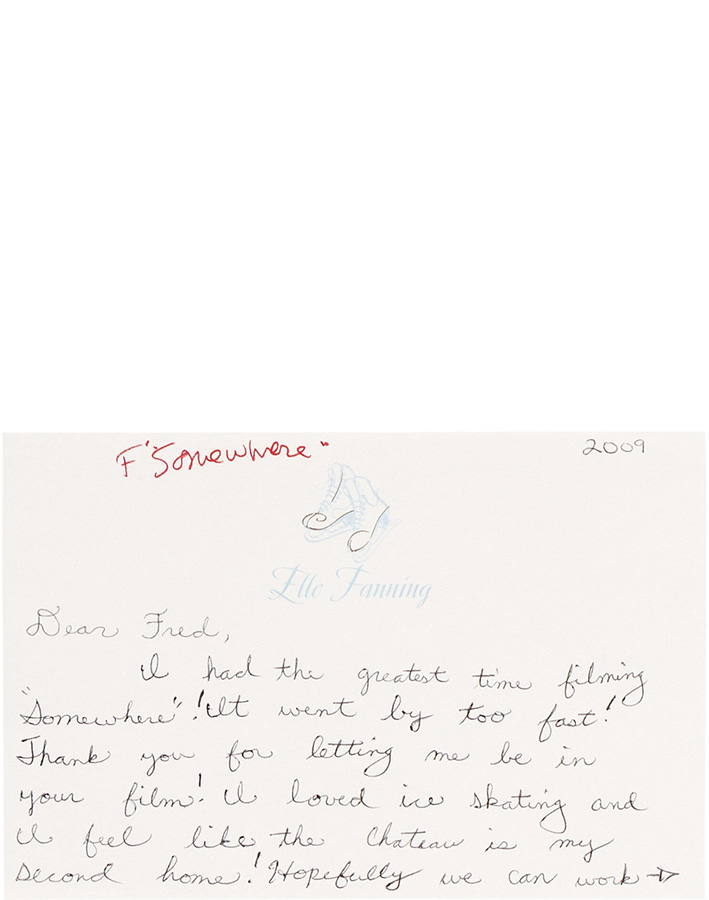 F "Somewhere"
2009
Elle Fanning
Dear Fred,
I had the greatest time filming
"Somewhere"! It went by too fast!
Thank you for letting me be in
your film! I loved ice skating and
I feel like the Chateau is my
second home! Hopefully we can work →